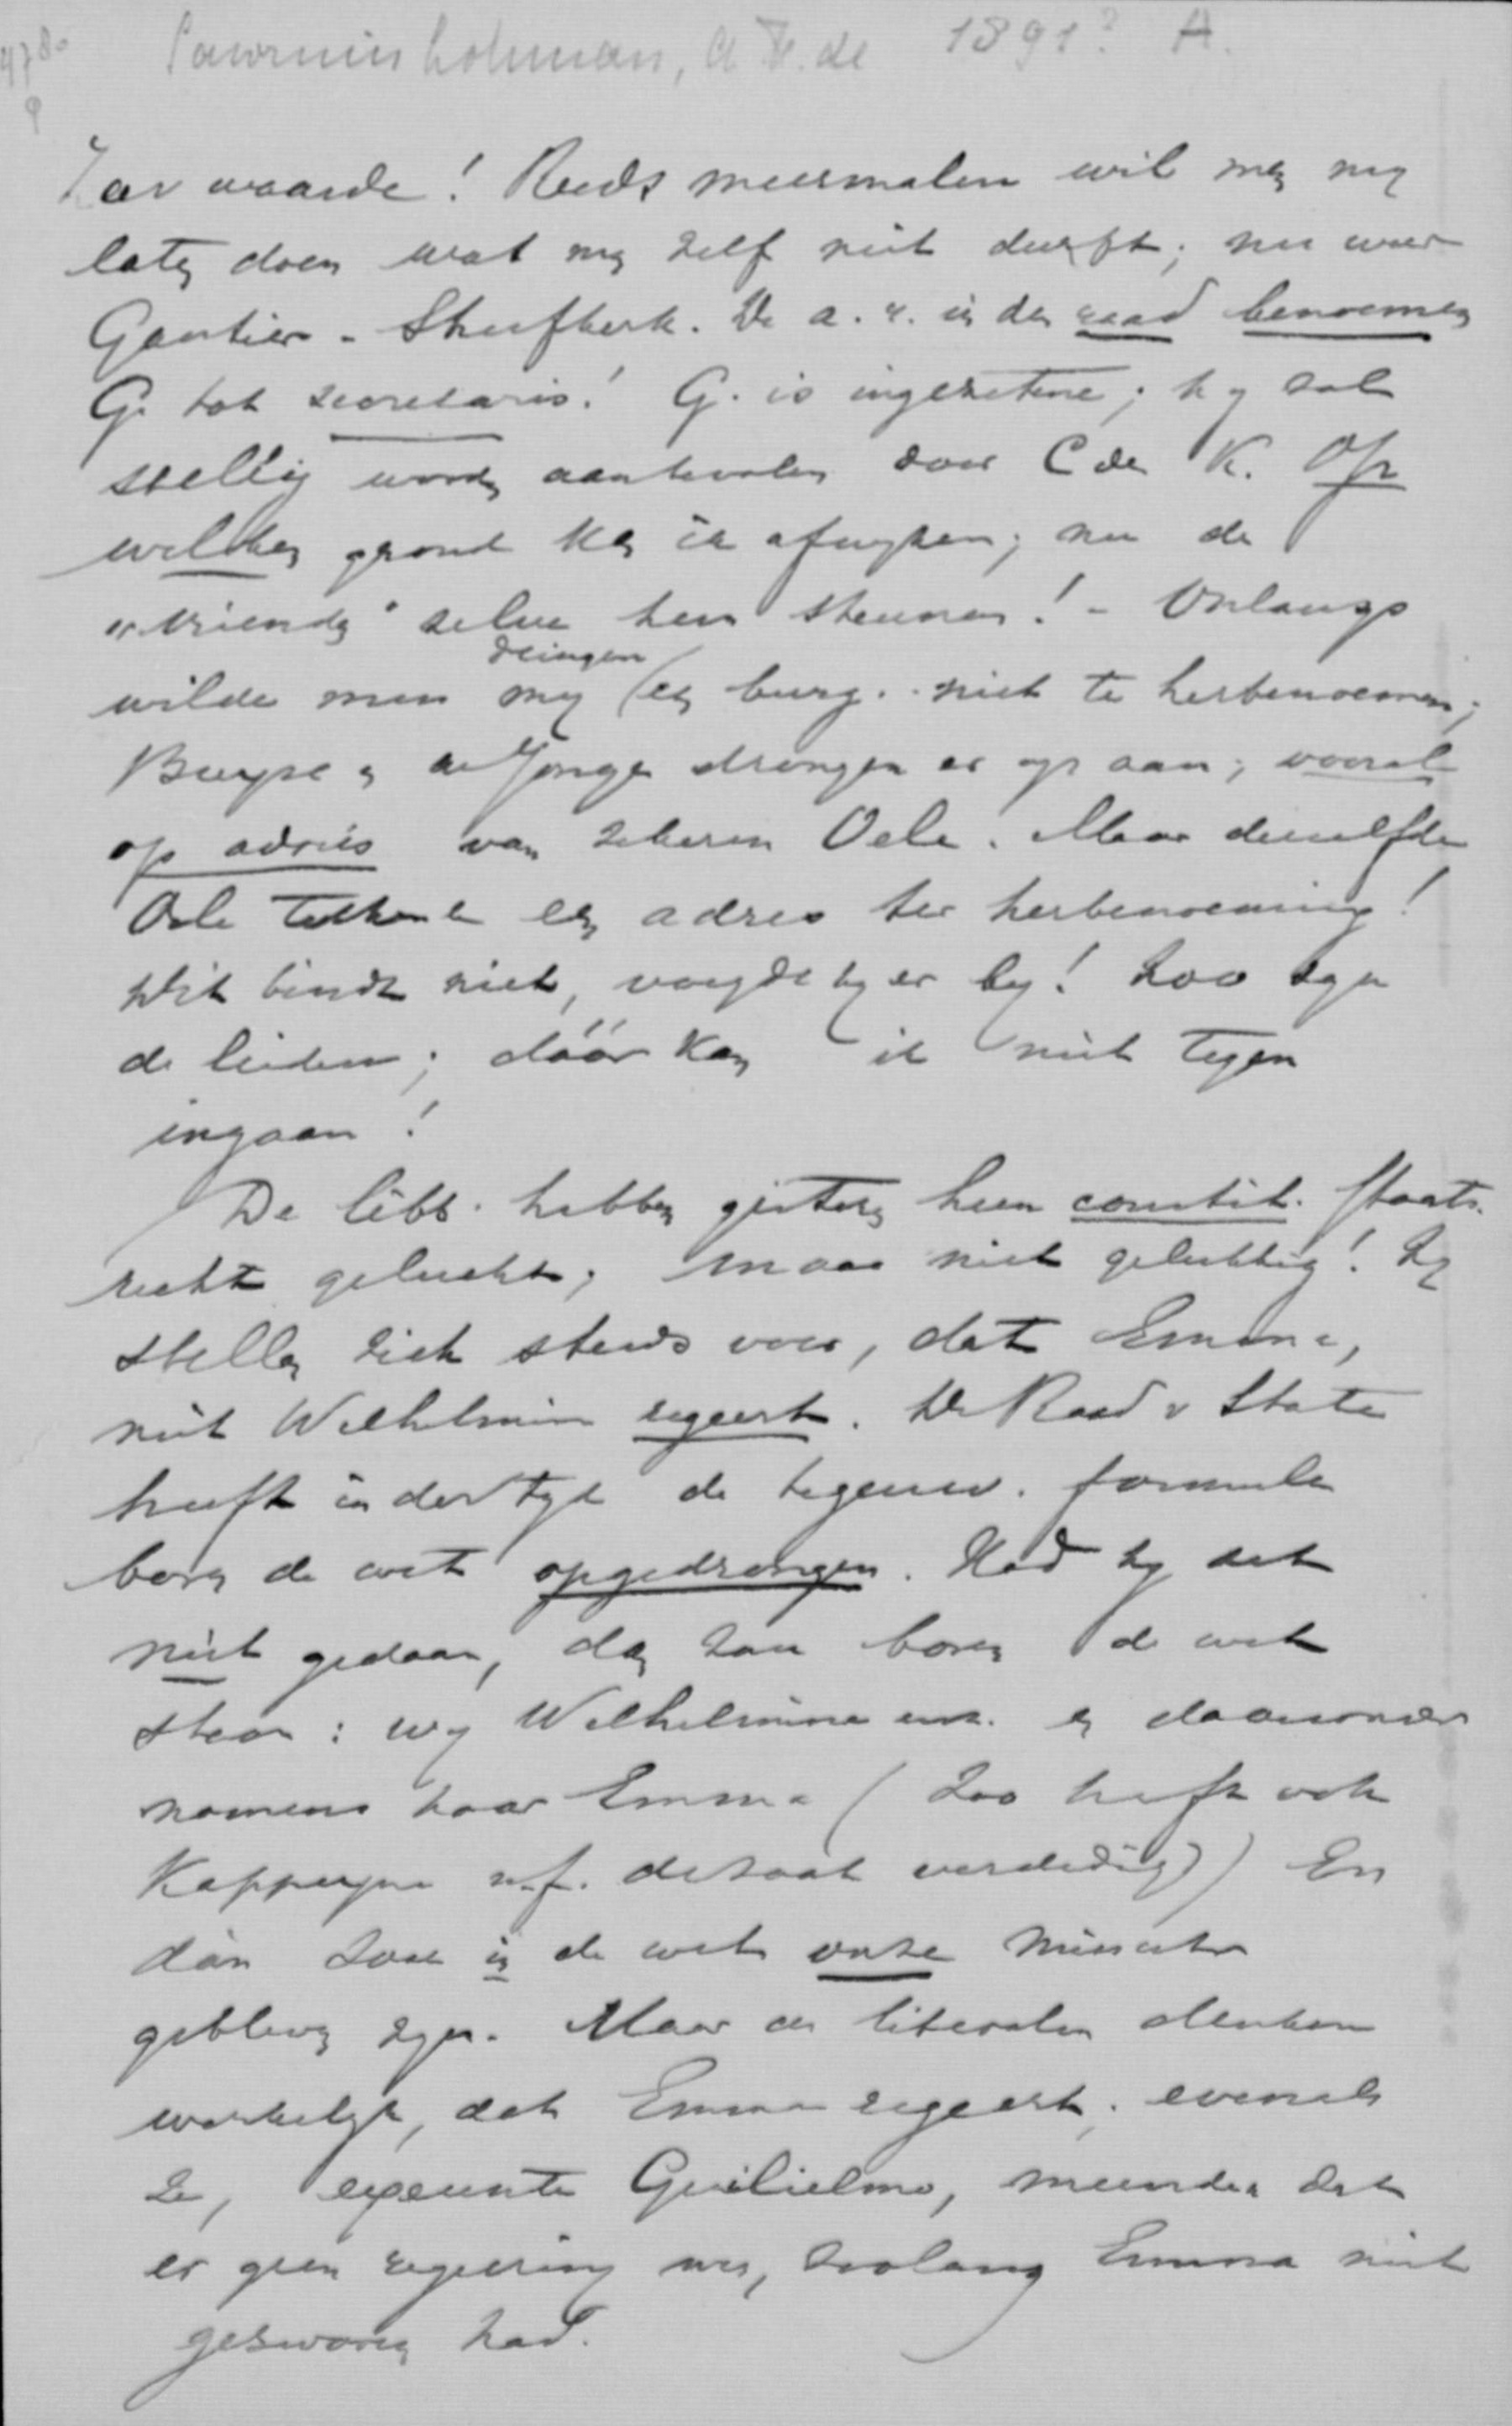 4780
9
Savornin Lohman, A. F. de 1891? A.
Zeer waarde! Reeds meermalen wil men my
laten doen wat my zelf niet durft; nu weer
Gautier - Sheefkerk. De a. r. in den raad benoemen
G. tot secretaris! G. is ingezetene; hy zal
stellig worden aanbevolen door C der K. Op
welken grond kan ik afwyken, nu de
"vrienden" zelve hem steunen! - Onlangs
dringen
wilde men my een burg. niet te herbenoemen;
Buyse en de Jonge drongen er op aan; vooral
op advies van zekeren Oele. Maar diezelfde
Oele teekende een adres ter herbenoeming!
Dit bindt niet, voegde hy er by! Zoo zyn
de lieden; dáár kan ik niet tegen
ingaan!
De libb. hebben gisteren hun constit. staats-
recht gelucht; maar niet gelukkig! Zy
stellen zich steeds voor, dat Emma,
niet Wilhelmina regeert. De Raad v State
heeft indertyd de tegenw. formule
boven de wet opgedrongen. Had hy dat
niet gedaan, dan zou boven de wet
staan: Wy Wilhelmina enz. en daaronder
namens haar Emma (Zoo heeft ook
Kappeyne n.f. dezaat verdedigd) En
dan zou in de wet onze minister
gebleven zyn. Maar de liberalen denken
werkelyk, dat Emma regeert; evenals
ze, exeunte Guilielmo, meenden dat
er geen regeering was, zoolang Emma niet
gezworen had.